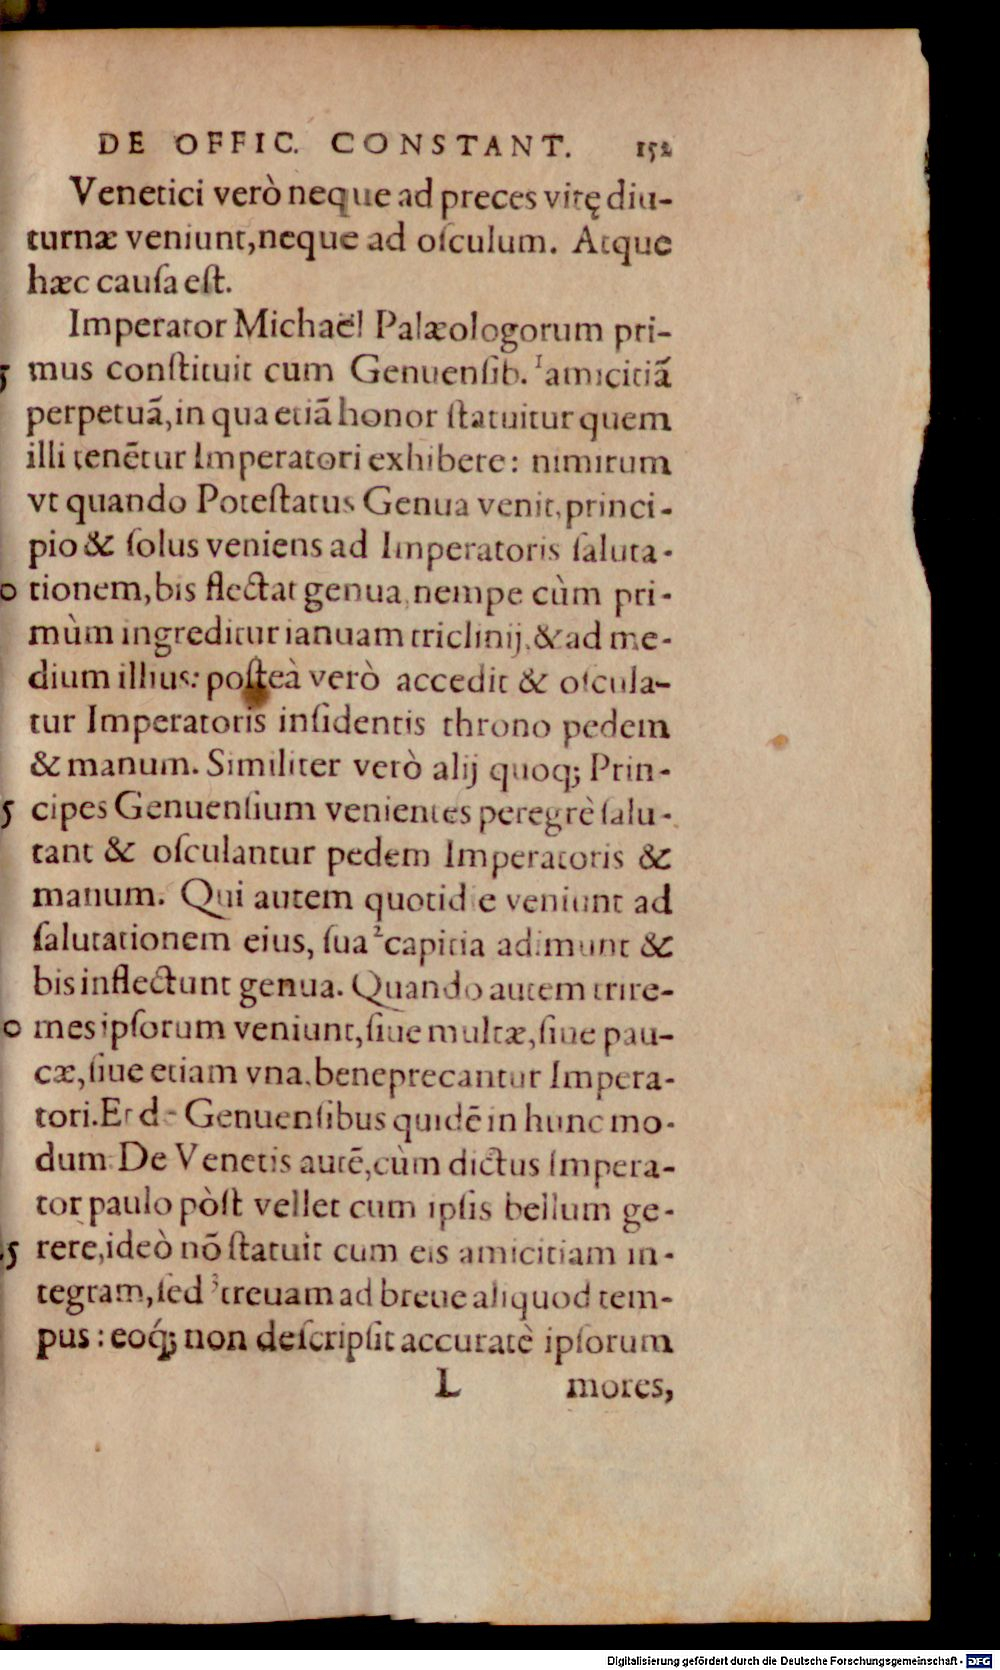 DE OFFIC. CONSTANT. 152
Venetici verò neque ad preces vitę diu-
turnæ veniunt, neque ad oſculum. Atque
hæc cauſa eſt.
Imperator Michaël Palæologorum pri-
5 mus conſtituit cum Genuenſib. ¹amicitiā
perpetuā, in qua etiā honor ſtatuitur quem
illi tenētur Imperatori exhibere: nimirum
vt quando Poteſtatus Genua venit, princi-
pio & ſolus veniens ad Imperatoris ſaluta-
0 tionem, bis flectat genua, nempe cùm pri-
mùm ingreditur ianuam triclinij, & ad me-
dium illius: poſteà verò accedit & oſcula-
tur Imperatoris inſidentis throno pedem
& manum. Similiter verò alij quoq; Prin-
5 cipes Genuenſium venientes peregrè ſalu-
tant & oſculantur pedem Imperatoris &
manum. Qui autem quotidie veniunt ad
ſalutationem eius, ſua ²capitia adimunt &
bis inflectunt genua. Quando autem trire-
0 mes ipſorum veniunt, ſiue multæ, ſiue pau-
cæ, ſiue etiam vna, beneprecantur Impera-
tori. Et de Genuenſibus quidē in hunc mo-
dum. De Venetis autē, cùm dictus Impera-
tor paulo pòſt vellet cum ipſis bellum ge-
5 rere, ideò nō ſtatuit cum eis amicitiam in-
tegram, ſed ³treuam ad breue aliquod tem-
pus: eoq́; non deſcripſit accuratè ipſorum
L mores,
Digitalisierung gefördert durch die Deutsche Forschungsgemeinschaft - DFG